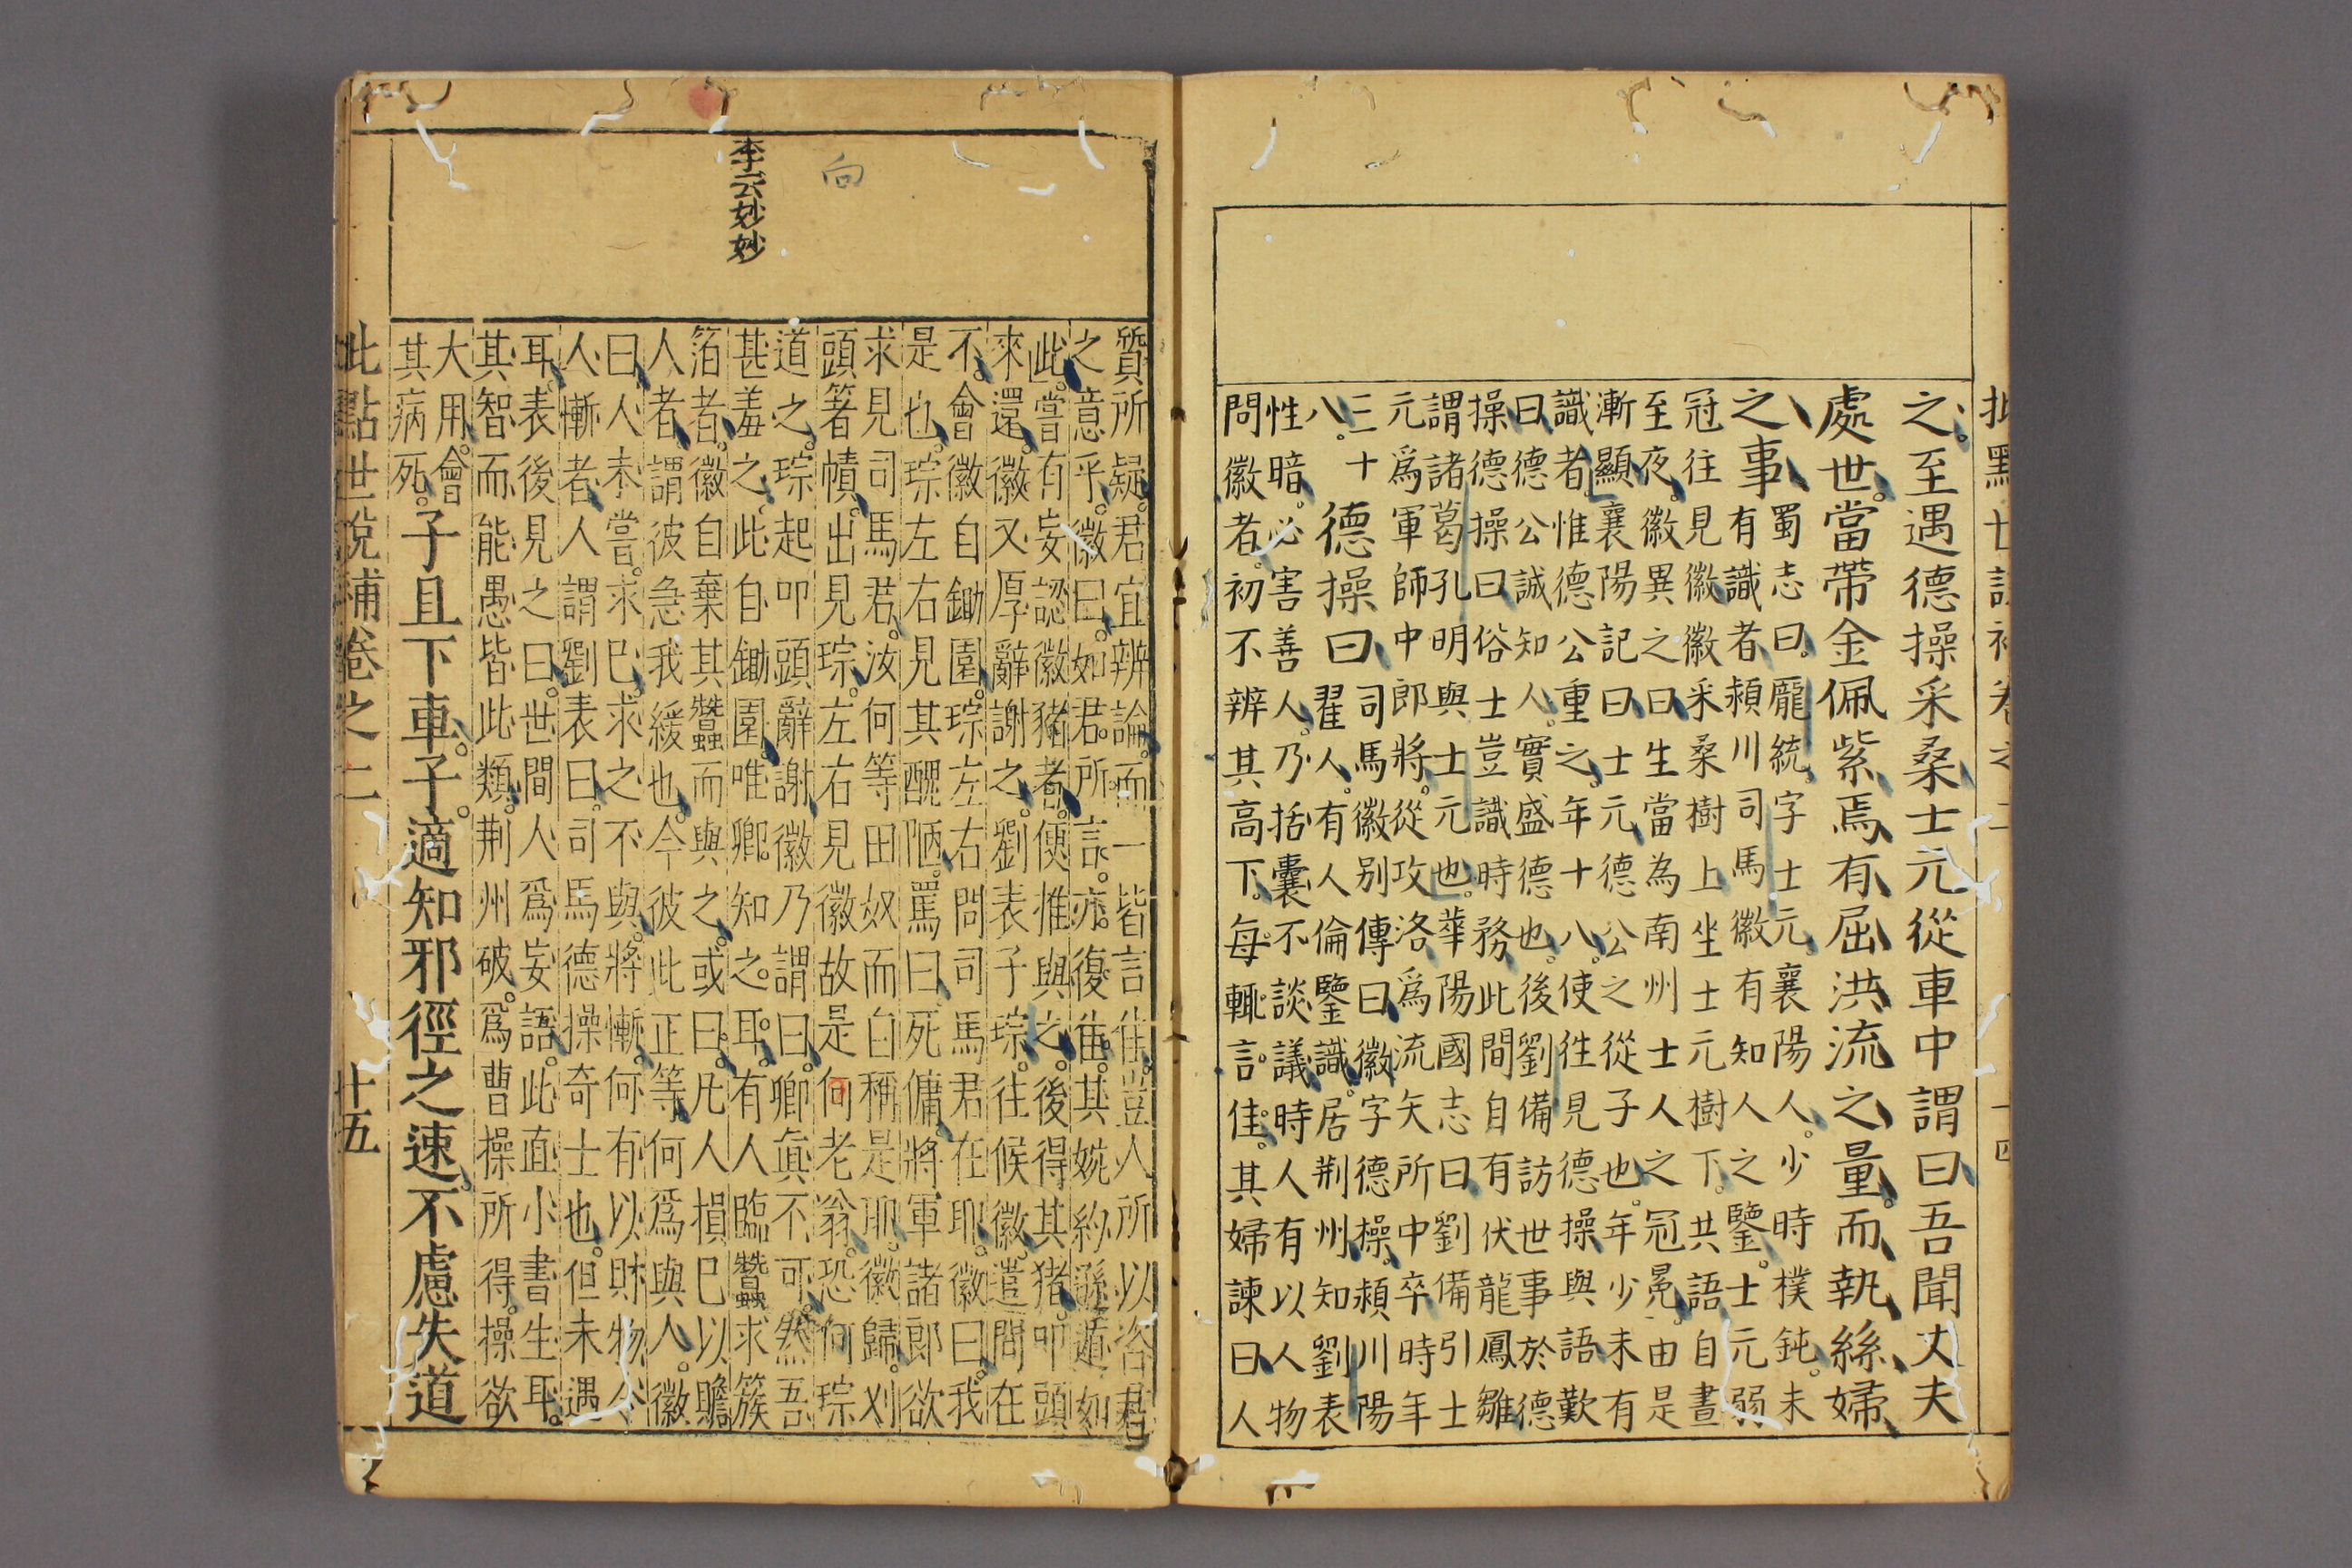 之至遇德操采桑士元從車中謂曰吾聞丈夫
處世當帶金佩紫焉有屈洪流之量而執絲婦
之事
蜀志曰龐統字士元襄陽人少時樸鈍未
有識者頴川司馬徽有知人之鑒士元弱
冠往見徽徽采桑樹上坐士元樹下共語自晝
至夜徽異之曰生當為南州士人之冠冕由是
漸顯襄陽記曰士元德公之從子也年少未有
識者惟德公重之年十八使徃見德操與語歎
曰德公誠知人實盛德也後劉備訪世事於德
操德操曰俗士豈識時務此間自有伏龍鳳雛
謂諸葛孔明與士元也華陽國志曰劉備引士
元爲軍師中郎將從攻洛爲流矢所中卒時年
三十
八
德操曰
司馬徽别傳曰徽字德操頴川陽
翟人有人倫鑒識居荆州知劉表
性暗必害善人乃括囊不談議時人有以人物
問徽者初不辨其高下每輒言佳其婦諫曰人
向
李云妙妙
質所疑君宜辨論而一皆言隹豈人所以咨君
之意乎徽曰如君所言亦復佳其婉約遜遁如
此嘗有妄認徽猪者便推與之後得其猪叩頭
來還徽又厚辭謝之劉表子琮往候徽遣問在
不會徽自鋤園琮左右問司馬君在耶徽曰我
是也琮左右見其醜陋罵曰死傭將軍諸郎欲
求見司馬君汝何等田奴而自稱是耶徽歸刈
頭著幘出見琮左右見徽故是何老翁恐何琮
道之琮起叩頭辭謝徽乃謂曰卿眞不可然吾
甚羞之此自鋤園唯卿知之耳有人臨蠶求簇
箔者徽自棄其蠶而與之或曰凡人損已以贍
人者謂彼急我緩也今彼此正等何爲與人徽
曰人未嘗求已求之不與將慚何有以財物令
人慚者人謂劉表曰司馬德操奇士也但未遇
耳表後見之曰世間人爲妄語此直小書生耳
其智而能愚皆此類荆州破爲曹操所得操欲
大用會
其病死
子且下車子適知邪徑之速不慮失道
批點世說補卷之二 十五